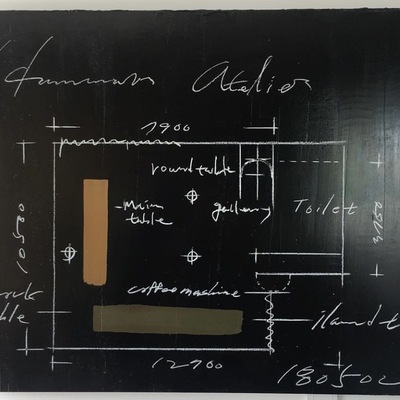 Atelier
7900
round table
main
table
gallery
Toilet
10500
coffee machine
12900
180502